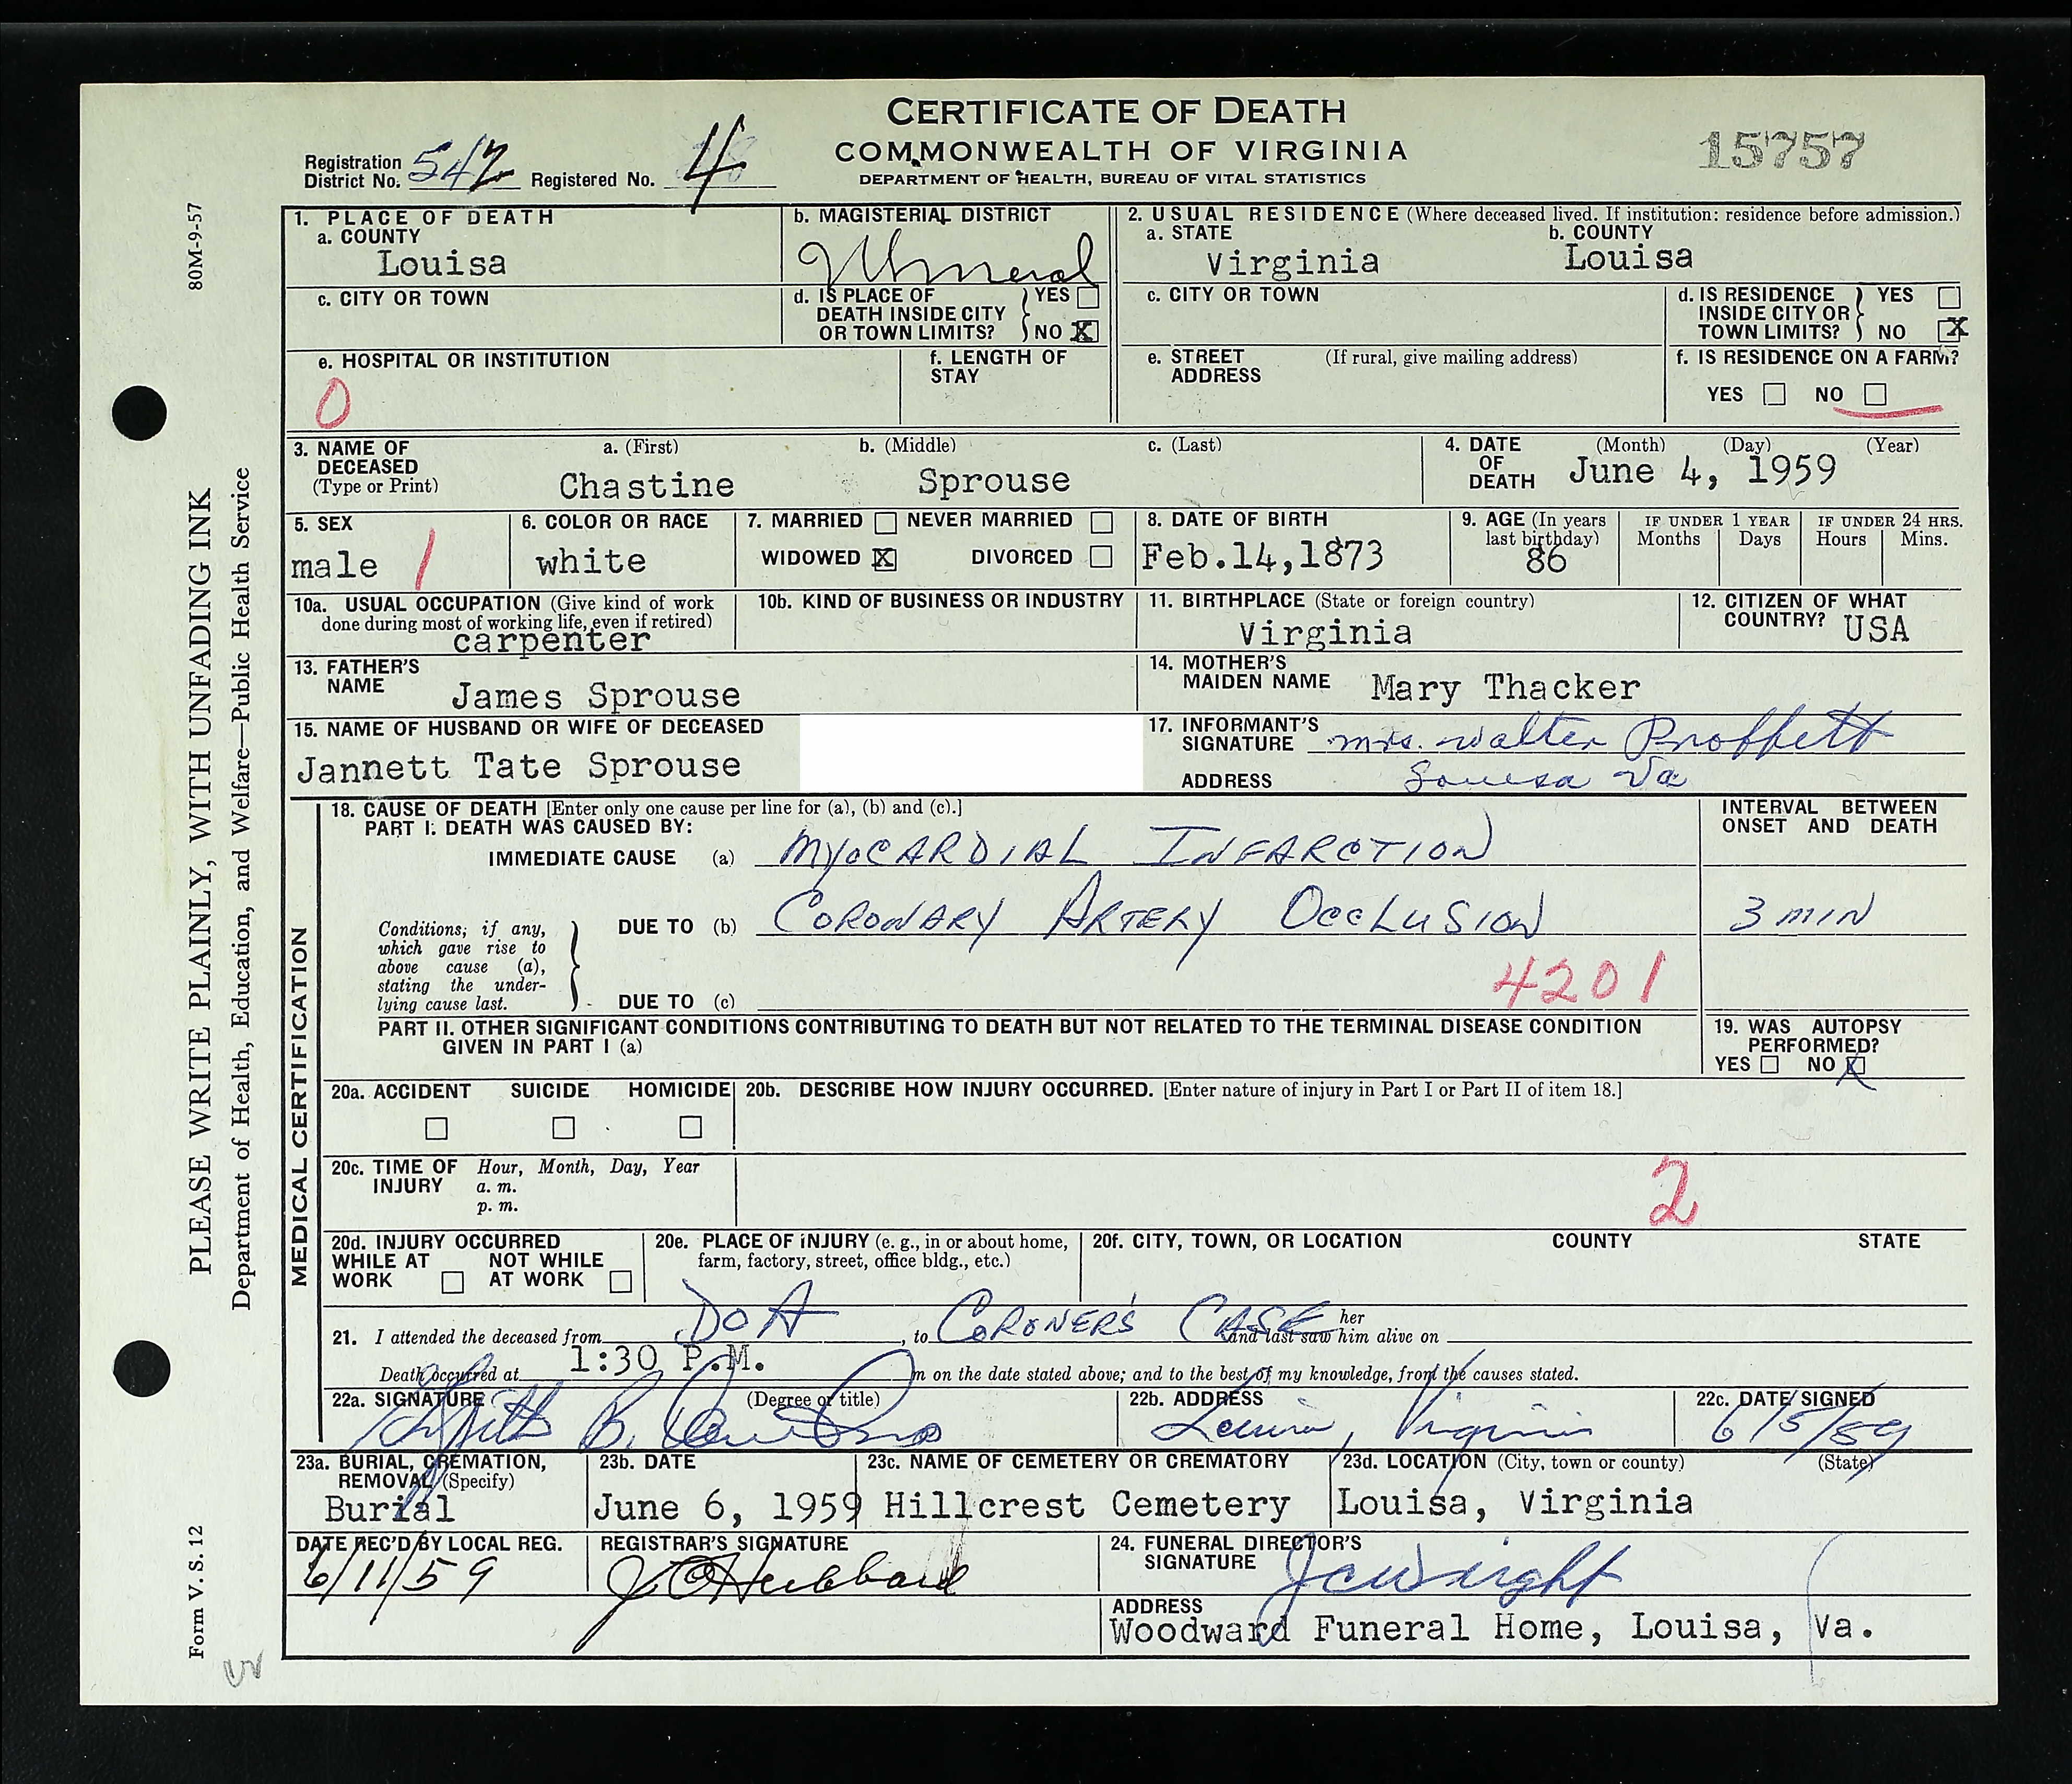 CERTIFICATE OF DEATH
COMMONWEALTH OF VIRGINIA
DEPARTMENT OF HEALTH, BUREAU OF VITAL STATISTICS
15757
Registration District No. 542 Registered No. 4
80M-9-57
PLEASE WRITE PLAINLY, WITH UNFADING INK
Department of Health, Education, and Welfare—Public Health Service
Form V. S. 12
1. PLACE OF DEATH
a. COUNTY
Louisa
b. MAGISTERIAL DISTRICT
Mineral
2. USUAL RESIDENCE (Where deceased lived. If institution: residence before admission.)
a. STATE
Virginia
b. COUNTY
Louisa
c. CITY OR TOWN
d. IS PLACE OF DEATH INSIDE CITY OR TOWN LIMITS? YES NO X
c. CITY OR TOWN
d. IS RESIDENCE INSIDE CITY OR TOWN LIMITS? YES NO X
e. HOSPITAL OR INSTITUTION
0
f. LENGTH OF STAY
e. STREET ADDRESS (If rural, give mailing address)
f. IS RESIDENCE ON A FARM?
YES NO
3. NAME OF DECEASED (Type or Print)
a. (First) b. (Middle) c. (Last)
Chastine Sprouse
4. DATE OF DEATH (Month) (Day) (Year)
June 4, 1959
5. SEX
male 1
6. COLOR OR RACE
white
7. MARRIED NEVER MARRIED
WIDOWED X DIVORCED
8. DATE OF BIRTH
Feb.14,1873
9. AGE (In years last birthday)
86
IF UNDER 1 YEAR
Months Days
IF UNDER 24 HRS.
Hours Mins.
10a. USUAL OCCUPATION (Give kind of work done during most of working life, even if retired)
carpenter
10b. KIND OF BUSINESS OR INDUSTRY
11. BIRTHPLACE (State or foreign country)
Virginia
12. CITIZEN OF WHAT COUNTRY? USA
13. FATHER'S NAME
James Sprouse
14. MOTHER'S MAIDEN NAME
Mary Thacker
15. NAME OF HUSBAND OR WIFE OF DECEASED
Jannett Tate Sprouse
17. INFORMANT'S SIGNATURE Mrs. Walter Proffett
ADDRESS Louisa Va
MEDICAL CERTIFICATION
18. CAUSE OF DEATH [Enter only one cause per line for (a), (b) and (c).]
PART I. DEATH WAS CAUSED BY:
IMMEDIATE CAUSE (a) MYOCARDIAL INFARCTION
INTERVAL BETWEEN ONSET AND DEATH
Conditions, if any, which gave rise to above cause (a), stating the underlying cause last.
DUE TO (b) CORONARY ARTERY OCCLUSION
3 MIN
4201
DUE TO (c)
PART II. OTHER SIGNIFICANT CONDITIONS CONTRIBUTING TO DEATH BUT NOT RELATED TO THE TERMINAL DISEASE CONDITION
GIVEN IN PART I (a)
19. WAS AUTOPSY PERFORMED?
YES NO X
20a. ACCIDENT SUICIDE HOMICIDE
20b. DESCRIBE HOW INJURY OCCURRED. [Enter nature of injury in Part I or Part II of item 18.]
20c. TIME OF INJURY Hour, Month, Day, Year
a. m.
p. m.
2
20d. INJURY OCCURRED
WHILE AT WORK NOT WHILE AT WORK
20e. PLACE OF INJURY (e. g., in or about home, farm, factory, street, office bldg., etc.)
20f. CITY, TOWN, OR LOCATION COUNTY STATE
21. I attended the deceased from DOA, to CORONER'S CASE and last saw her him alive on
Death occurred at 1:30 P.M. m on the date stated above; and to the best of my knowledge, from the causes stated.
22a. SIGNATURE (Degree or title)
22b. ADDRESS
Louisa, Virginia
22c. DATE SIGNED
6/5/59
23a. BURIAL, CREMATION, REMOVAL (Specify)
Burial
23b. DATE
June 6, 1959
23c. NAME OF CEMETERY OR CREMATORY
Hillcrest Cemetery
23d. LOCATION (City, town or county) (State)
Louisa, Virginia
DATE REC'D BY LOCAL REG.
6/11/59
REGISTRAR'S SIGNATURE
J O Hubbard
24. FUNERAL DIRECTOR'S SIGNATURE
J C Wright
ADDRESS
Woodward Funeral Home, Louisa, Va.